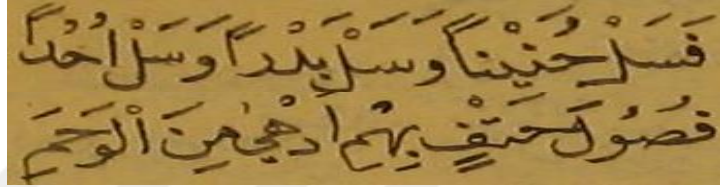 فَسَلْ حُنَيْناً وَسَلْ بَدْراً وَسَلْ اُحُداً
فُصُولَ حَتْفٍ بِهِمْ اَدْهٰى مِنَ الْوَخَمِ